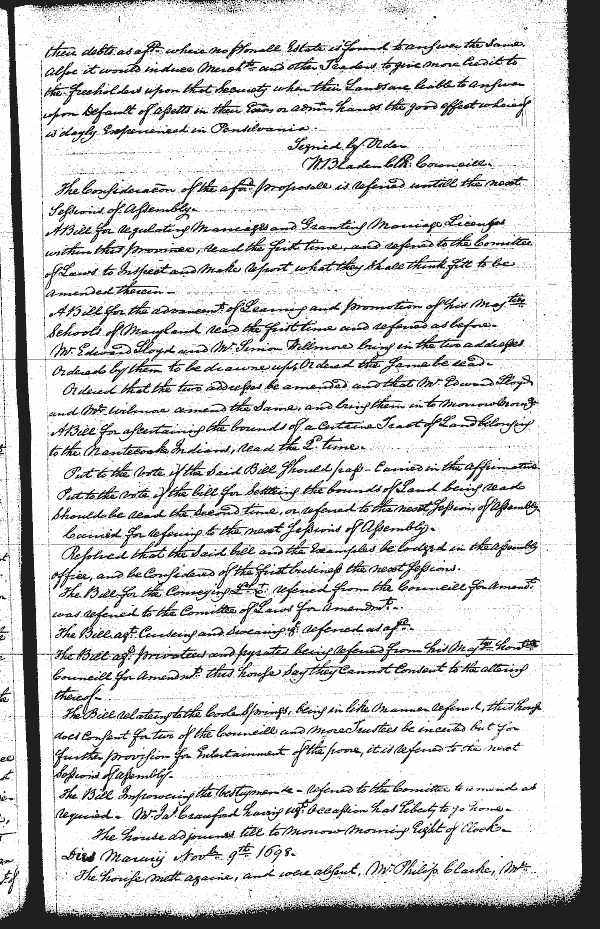 their debts as afd. where no psonall Estate is found to answer the Same.
alsoe it would induce Merchts. and other Traders to give more Credit to
the freeholders upon that Security when their Lands are liable to answer
upon Default of assetts in their Exrs or admrs hands the good effect whereof
is dayly Experienced in Pensilvania.
Signed by Order
W Bladen Clk Councill.
The Consideration of the afd. proposall is referred untill the next
Sessions of Assembly.
A Bill for regulating Marriages and Granting Marriage Licenses
within this province, read the first time, and referred to the Comittee
of Laws to Inspect and make report what they shall think fitt to be
amended therein.
A Bill for the advancemt. of Learning and promotion of his Maj.ties
Schools of Maryland read the first time and referred as before.
Mr. Edward Lloyd and Mr. Simon Willmore bring in the two addresses
Ordered by them to be drawne up, Ordered the Same be read.
Ordered that the two addresses be amended and that Mr. Edward Lloyd
and Mr. Wilmore amend the Same, and bring them in to Morrow Morng
A Bill for ascertaining the bounds of a Certeine Tract of Land belonging
to the Nantecoke Indians, read the 2d. time.
Put to the vote if the Said Bill Should pass - Carried in the Affirmative
Put to the vote if the bill for Settling the bounds of Land being read
Should be read the Second time, or referred to the next Sessions of Assembly
Carried for refering to the next Sessions of Assembly.
Resolved that the Said bill and the Examples be lodged in the assembly
office, and be Considered of the first business the next Sessions.
The Bill for the Conveying &c. referred from the Councill for Amendt.
was referred to the Comittee of Laws for Amendmt. -
The Bill agt. Curseing and Swearing &c. referred as afd. -
The Bill agt. privateers and pyrates being referred from his Maj.tys honble
Councill for Amendmt. this house Say they Cannot Consent to the altering
thereof.
The Bill relateing to the Coole Springs, being in like Manner referred, this house
does Consent for two of the Councill and more Trustees be incerted but for
further provision for Entertainment of the poore, it is referred to the next
Sessions of Assembly.
The Bill Impowering the Vestrymen &c - referred to the Comittee to amend as
required. Mr. Jas. Crauford having urgt. Occassion has liberty to go home.
The house adjournes till to Morrow Morning Eight of Clock.
Dies Mercurij Novbr. 9th. 1698.
The house mett againe, and were absent, Mr. Philip Clarke, Mr.